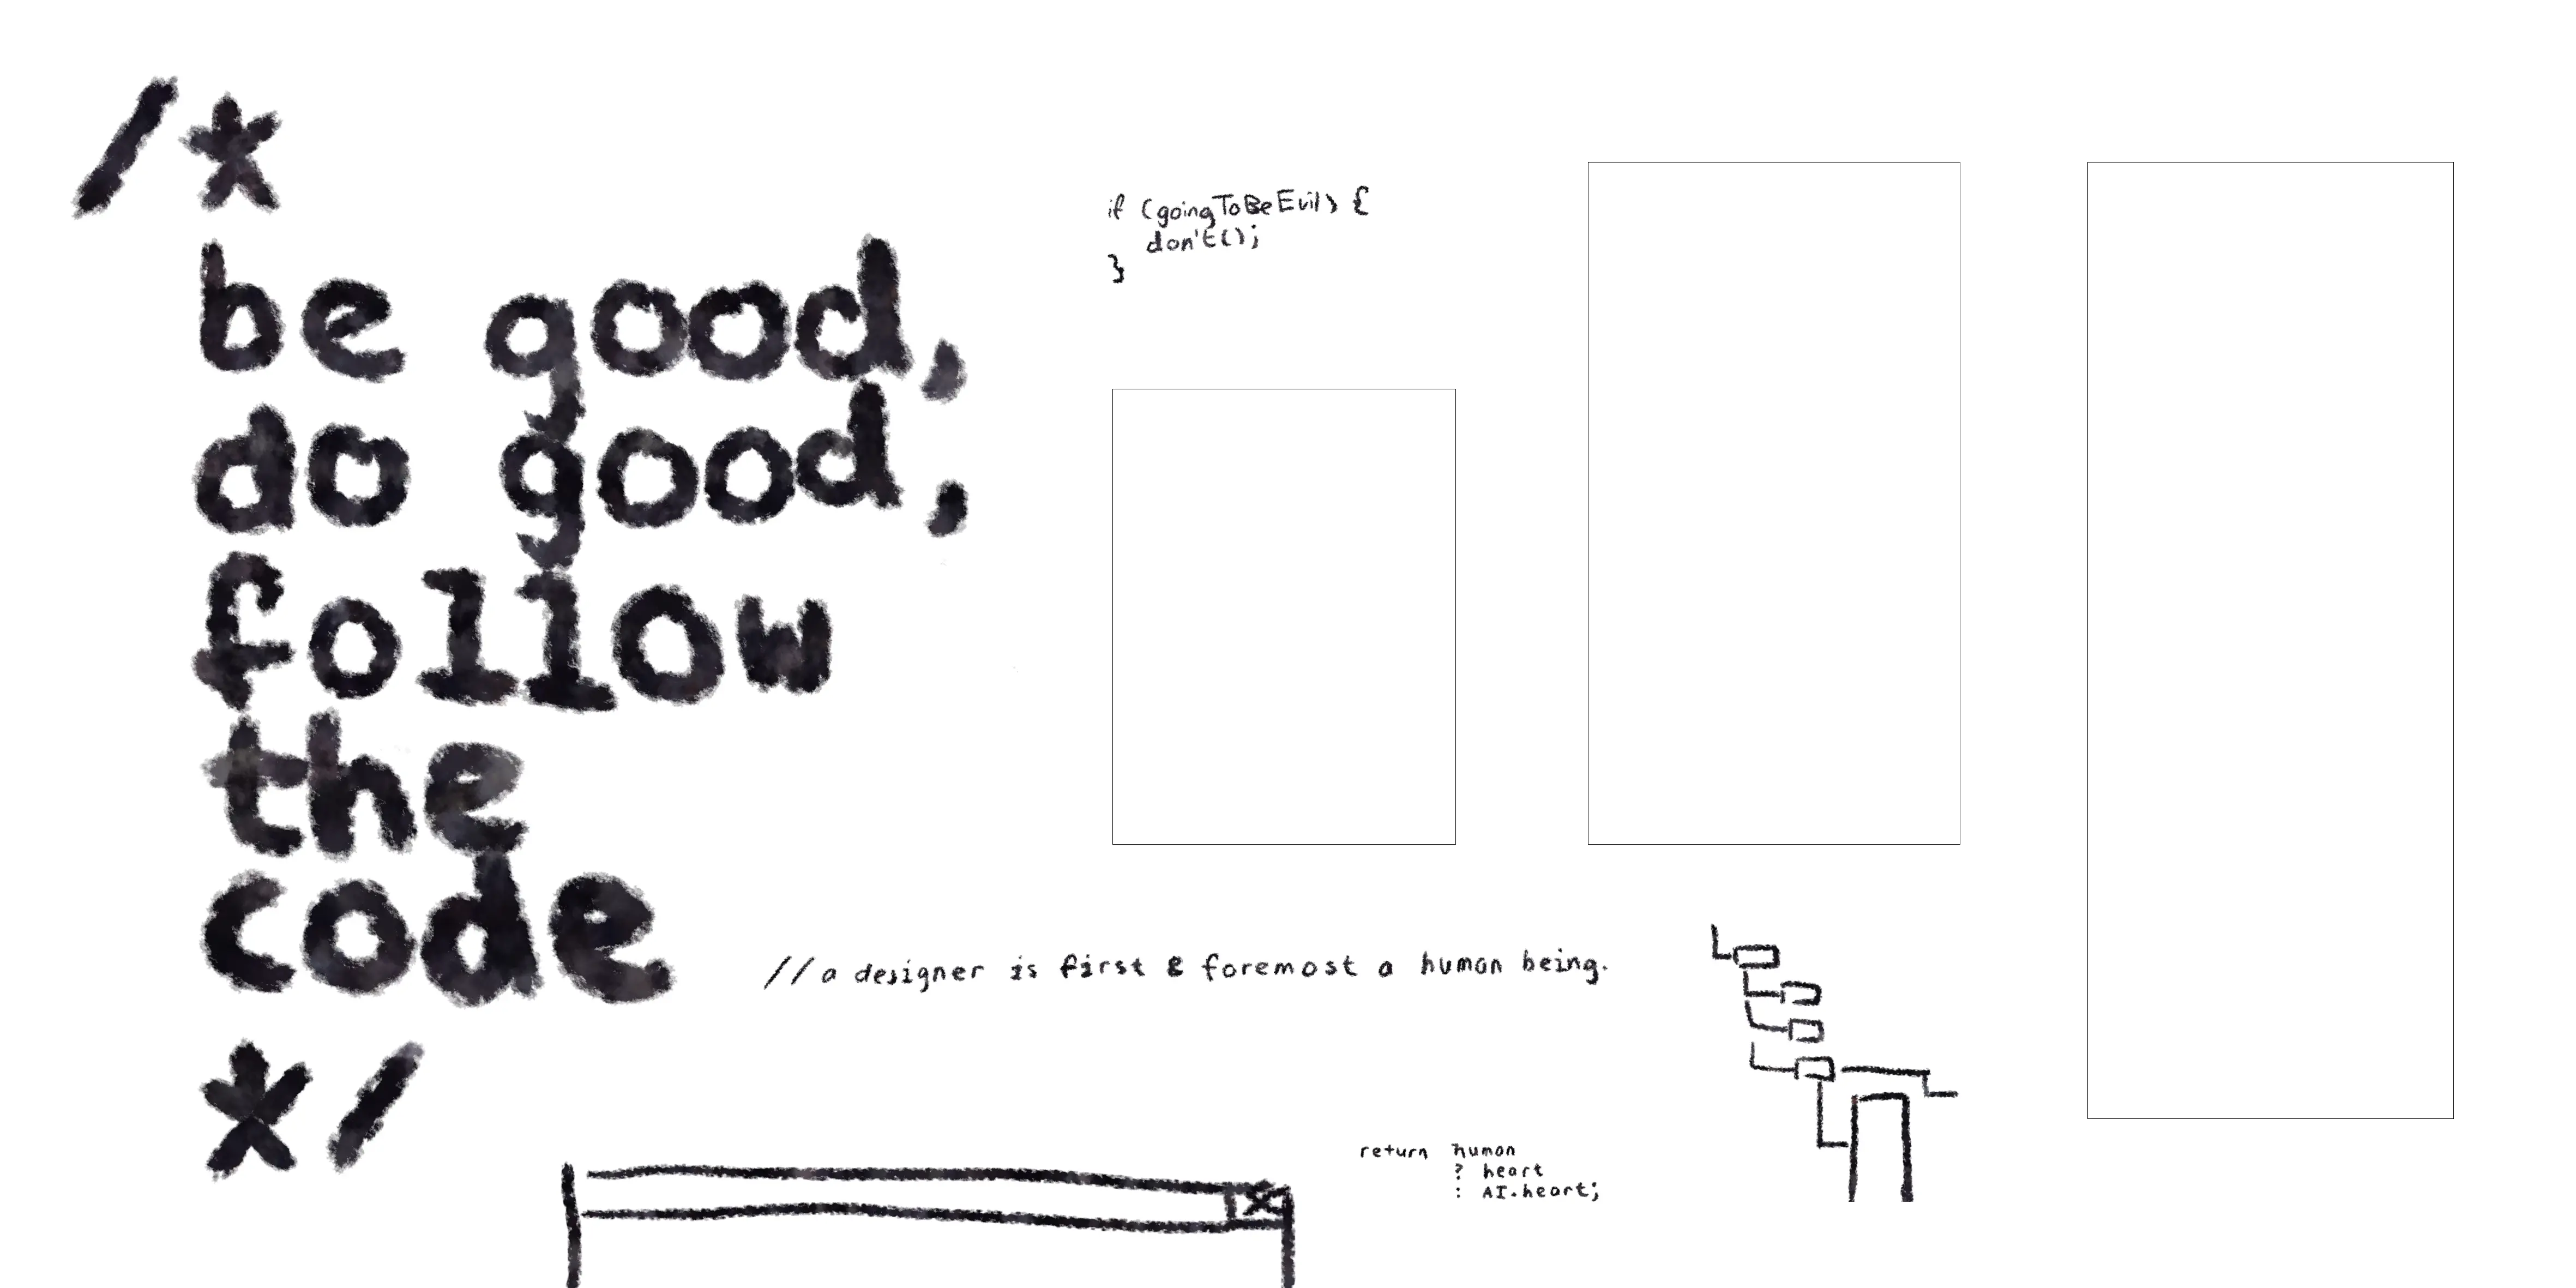 /*
be good,
do good,
follow
the
code
*/
if (goingToBeEvil) {
don't();
}
// a designer is first & foremost a human being.
return human
? heart
: AI.heart;